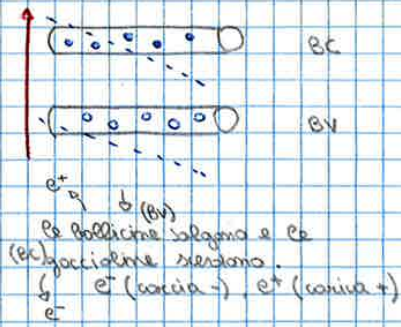 BC
BV
e⁺
(BV)
le bollicine salgono e le
(BC) goccioline scendono.
e⁻ (caccia -), e⁺ (carica +)
e⁻